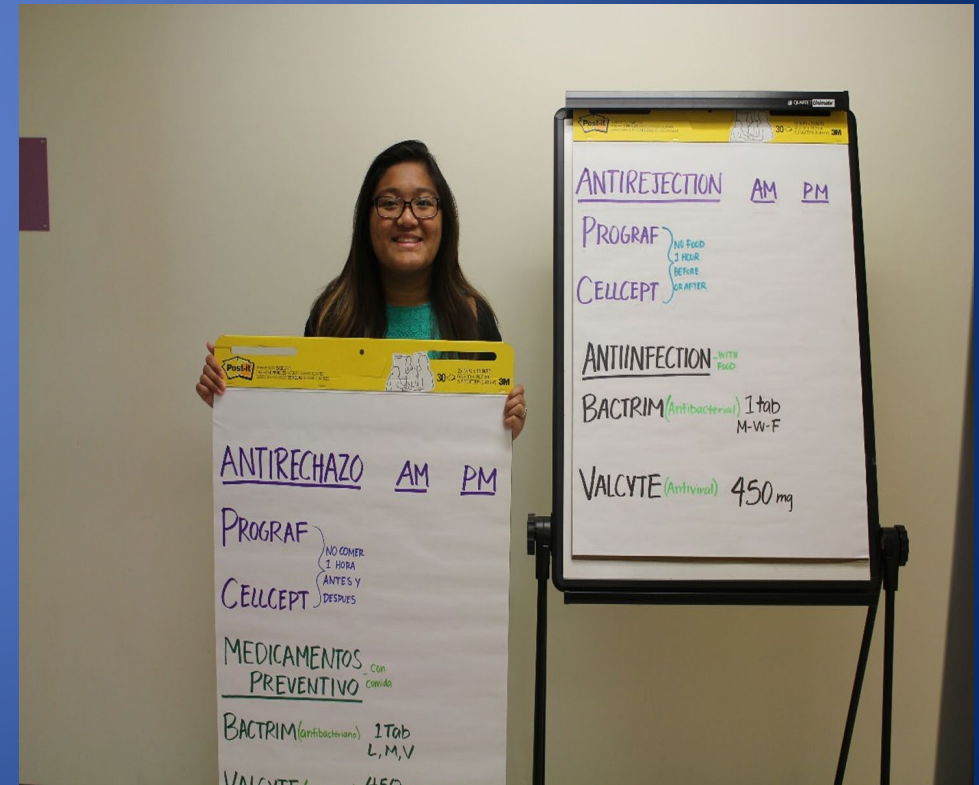 Post-it
30
3M
ANTIRECHAZO AM PM
PROGRAF
NO COMER
1 HORA
ANTES Y
DESPUES
CELLCEPT
MEDICAMENTOS
PREVENTIVO
- con
comida
BACTRIM (antibacteriano) 1 Tab
L, M, V
VALCYTE 450
QUARTET
Post-it
30
3M
ANTIREJECTION AM PM
PROGRAF
NO FOOD
1 HOUR
BEFORE
OR AFTER
CELLCEPT
ANTIINFECTION - WITH
FOOD
BACTRIM (Antibacterial) 1 tab
M-W-F
VALCYTE (Antiviral) 450 mg